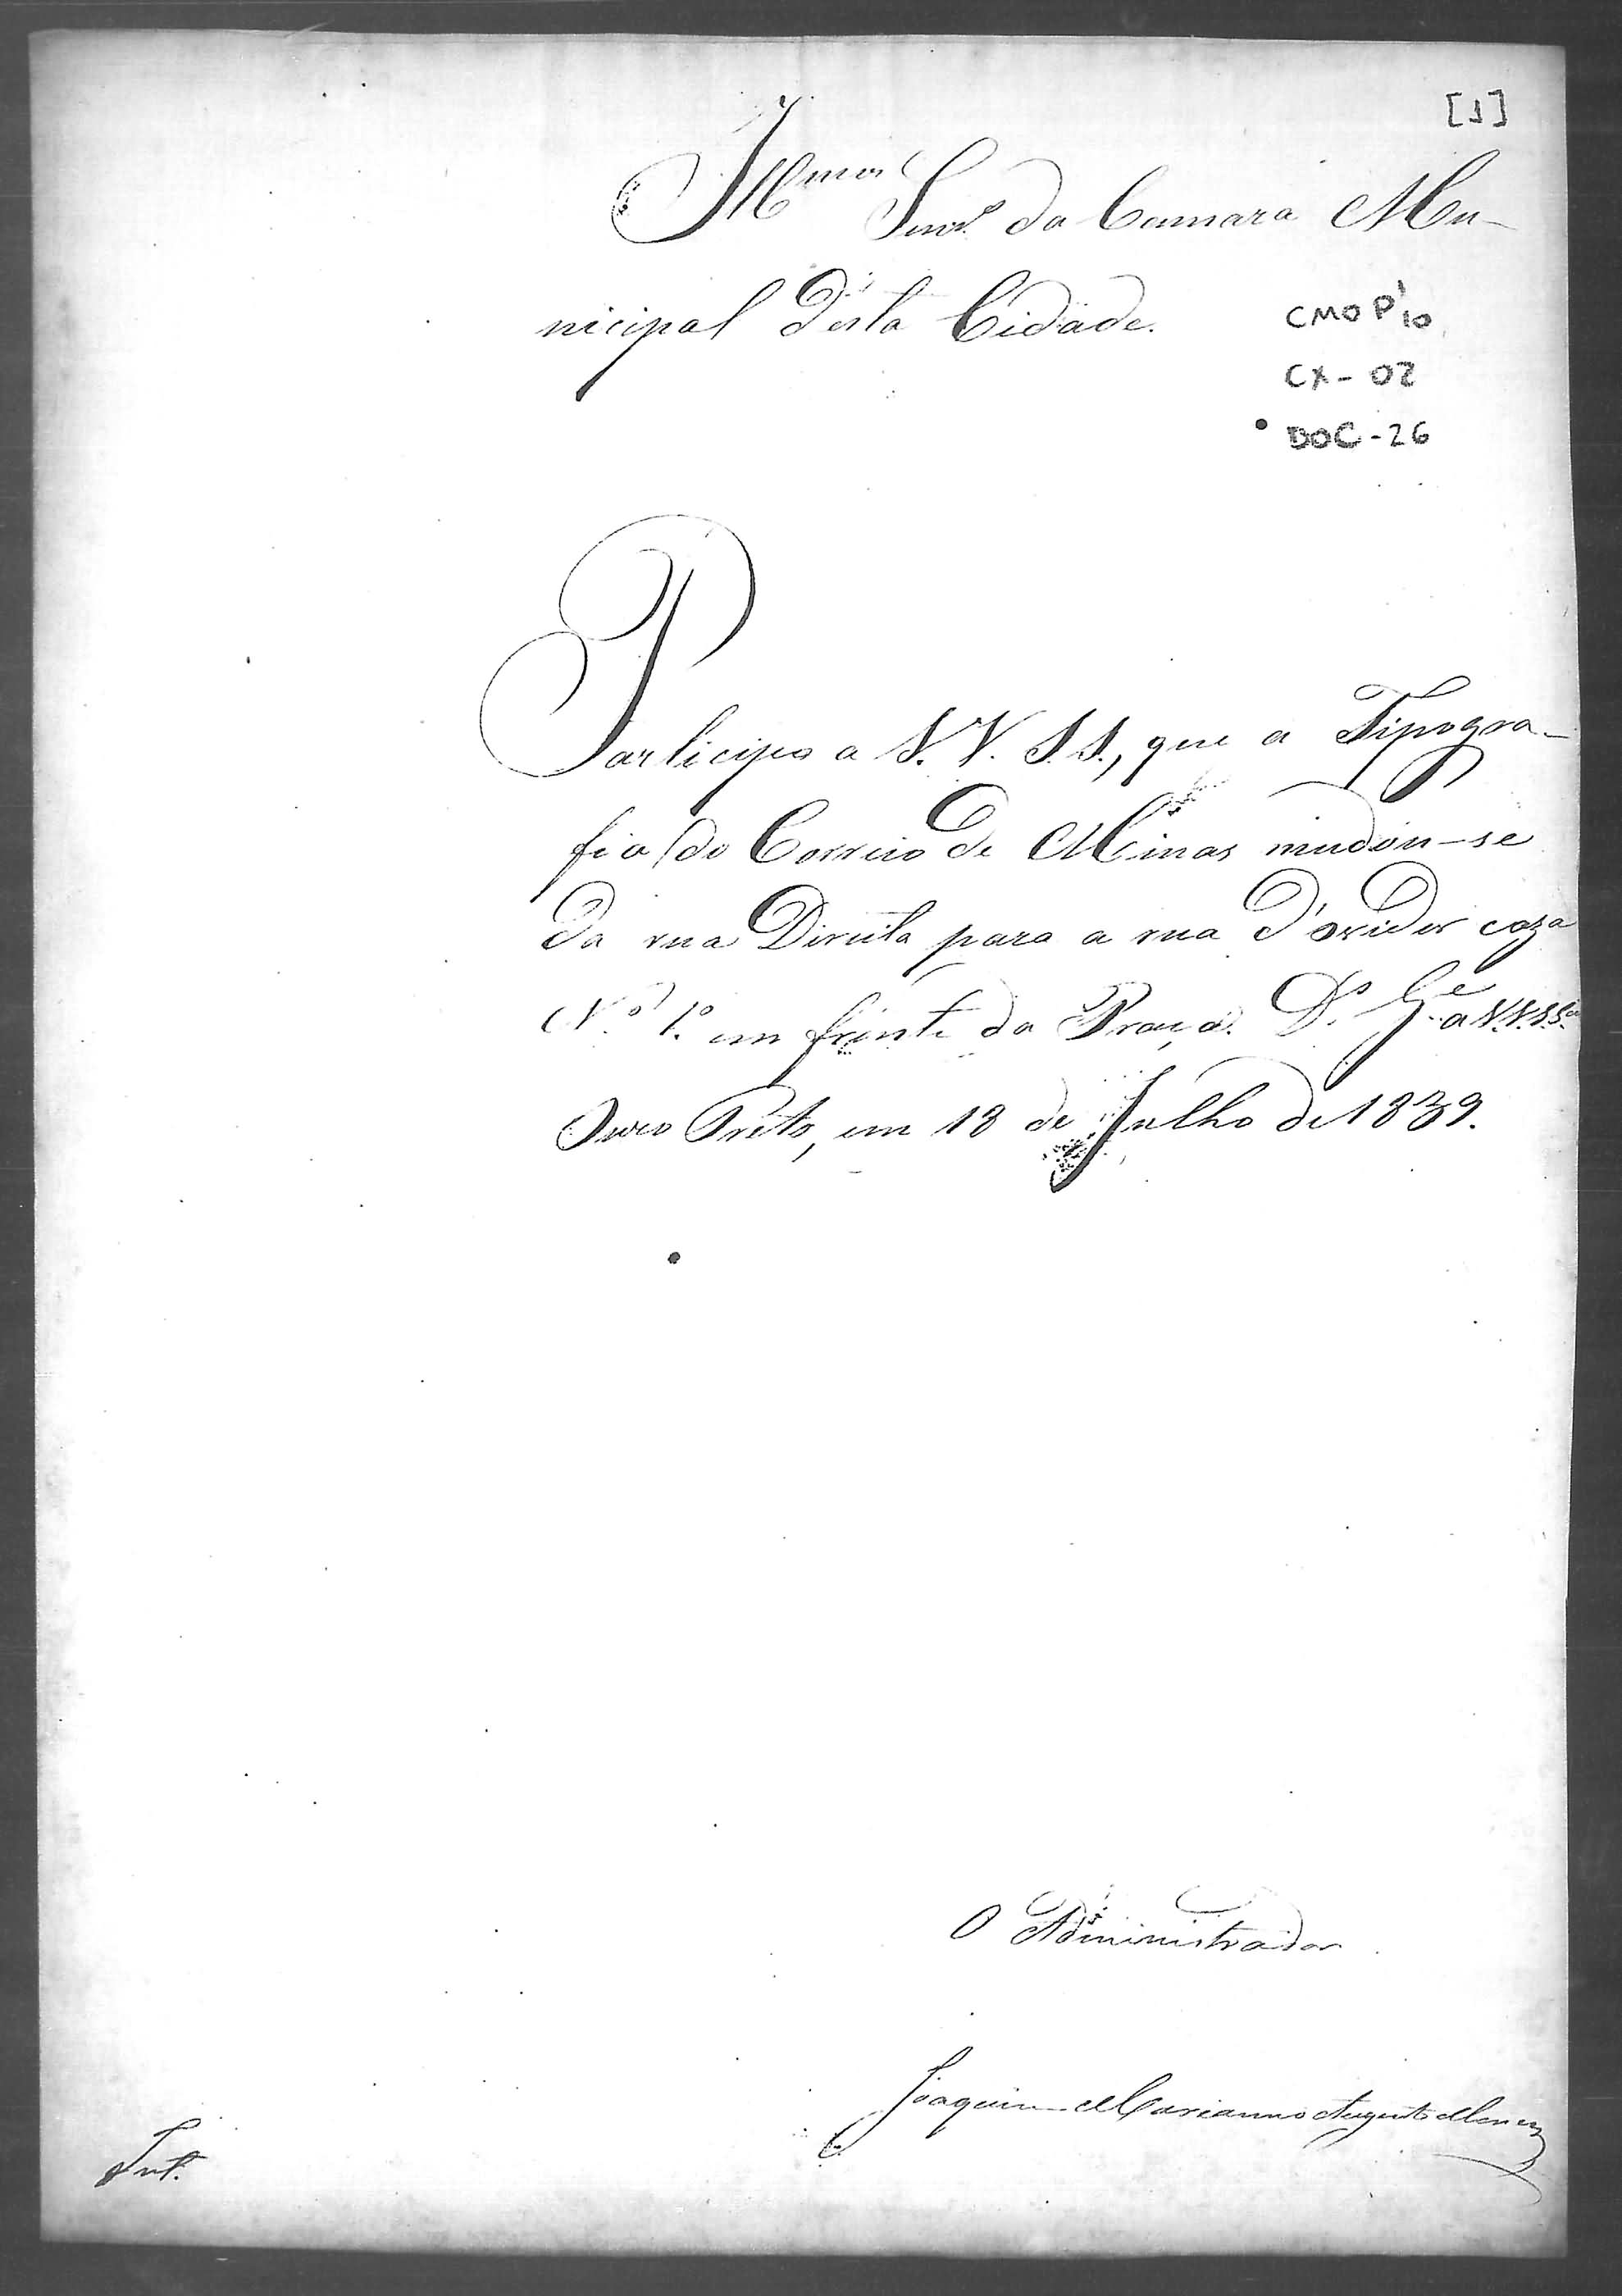 [1]
Illmos Snrs da Camara Mu-
nicipal d'esta Cidade.
CMOP 1/10
CX - 02
DOC - 26
Participo a V. V. S. S., que a Tipogra-
fia do Correio de Minas mudou-se
da rua Direita para a rua d'Ovidor caza
N.º 1.º em frente da Praça. Ds. Ge a V.V.S.Sas
Ouro Preto, em 18 de Julho de 1839.
O Administrador
Joaquim Marianno Augusto Menez